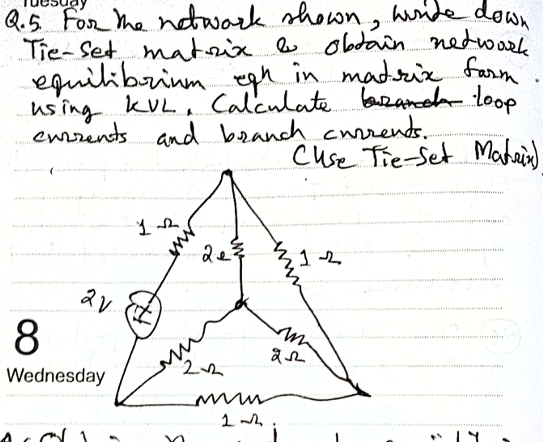 Tuesday
Q.5 For the network shown, write down
Tie-Set matrix & obtain network
equilibrium eqn in matrix form.
using KVL. Calculate branch loop
currents and branch currents.
(Use Tie-Set Matrix)
1 Ω
2Ω
1 Ω
2V
8
Wednesday
2 Ω
2 Ω
1 Ω